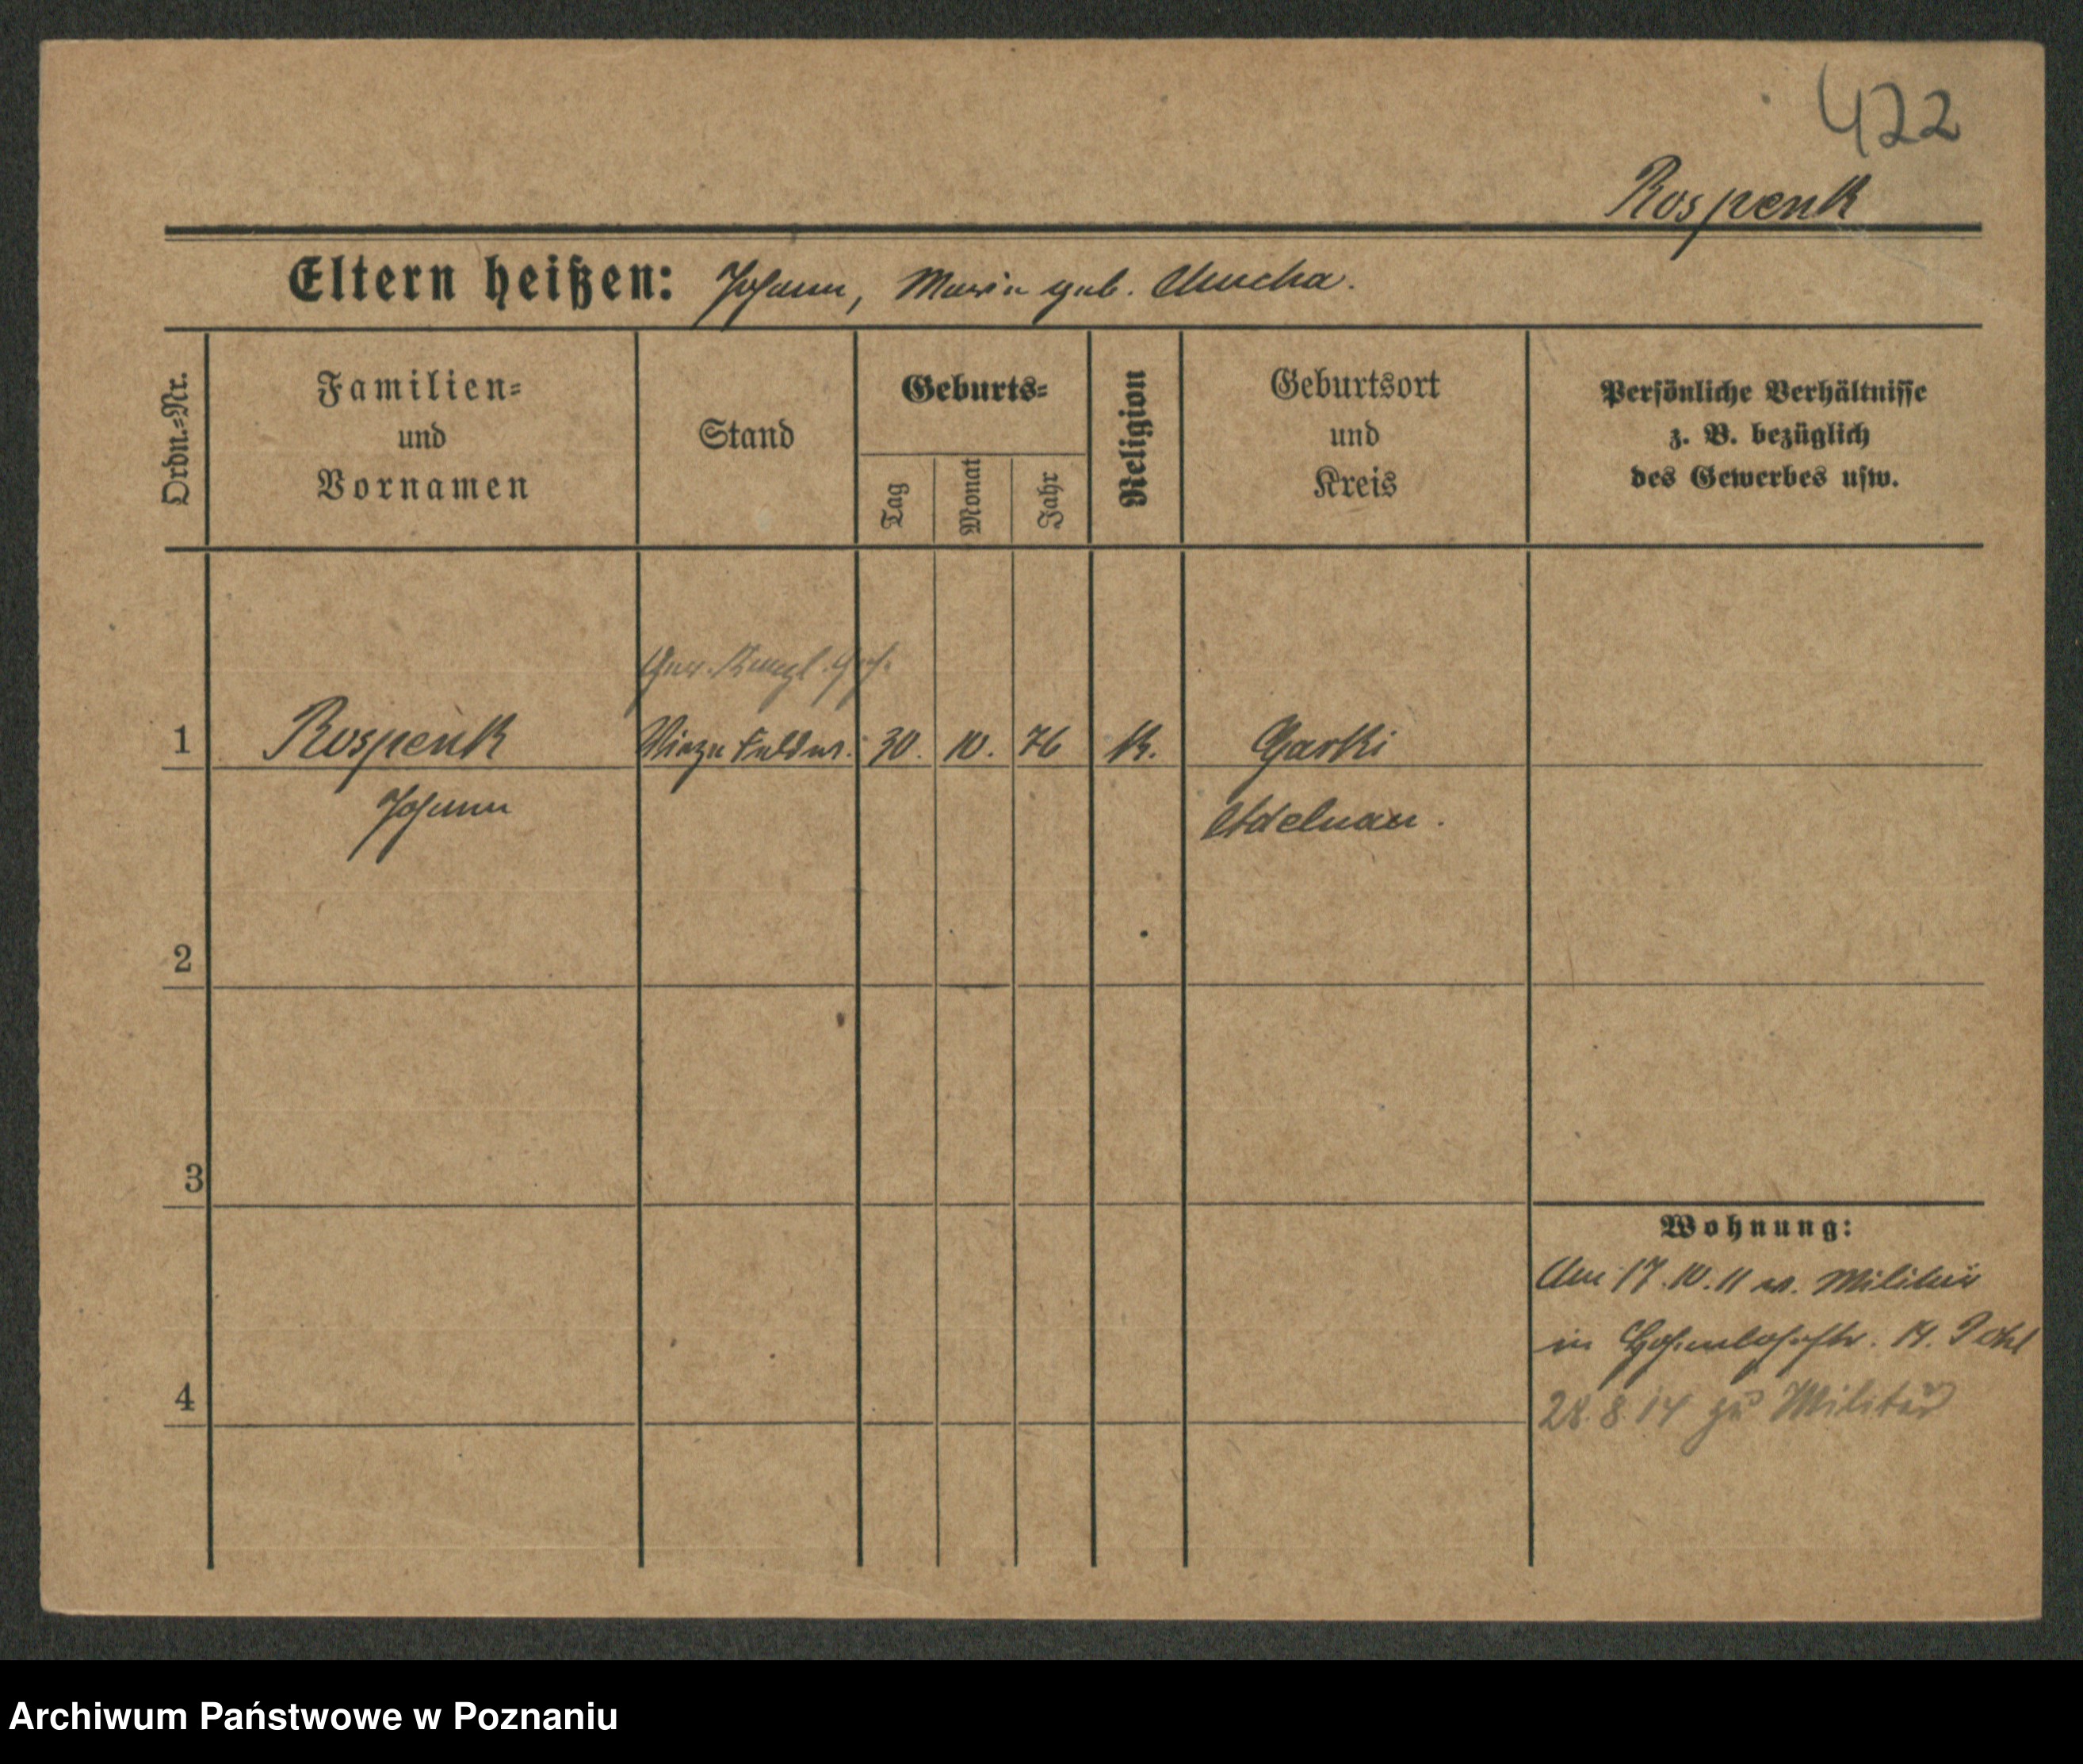 422
Rospenk
Eltern heißen: Johann, Maria geb. Mucha.
Ordn.=Nr.
Familien=
und
Vornamen
Stand
Geburts=
Tag
Monat
Jahr
Religion
Geburtsort
und
Kreis
Persönliche Verhältnisse
z. B. bezüglich
des Gewerbes usw.
1 Rospenk Vizefeldw. 30. 10. 76 K. Garki
Johann Adelnau.
2
3
4
Wohnung:
Am 17.10.11 v. Militär
in Hohenlohestr. 14.
28.8.14 zu Militär
Archiwum Państwowe w Poznaniu